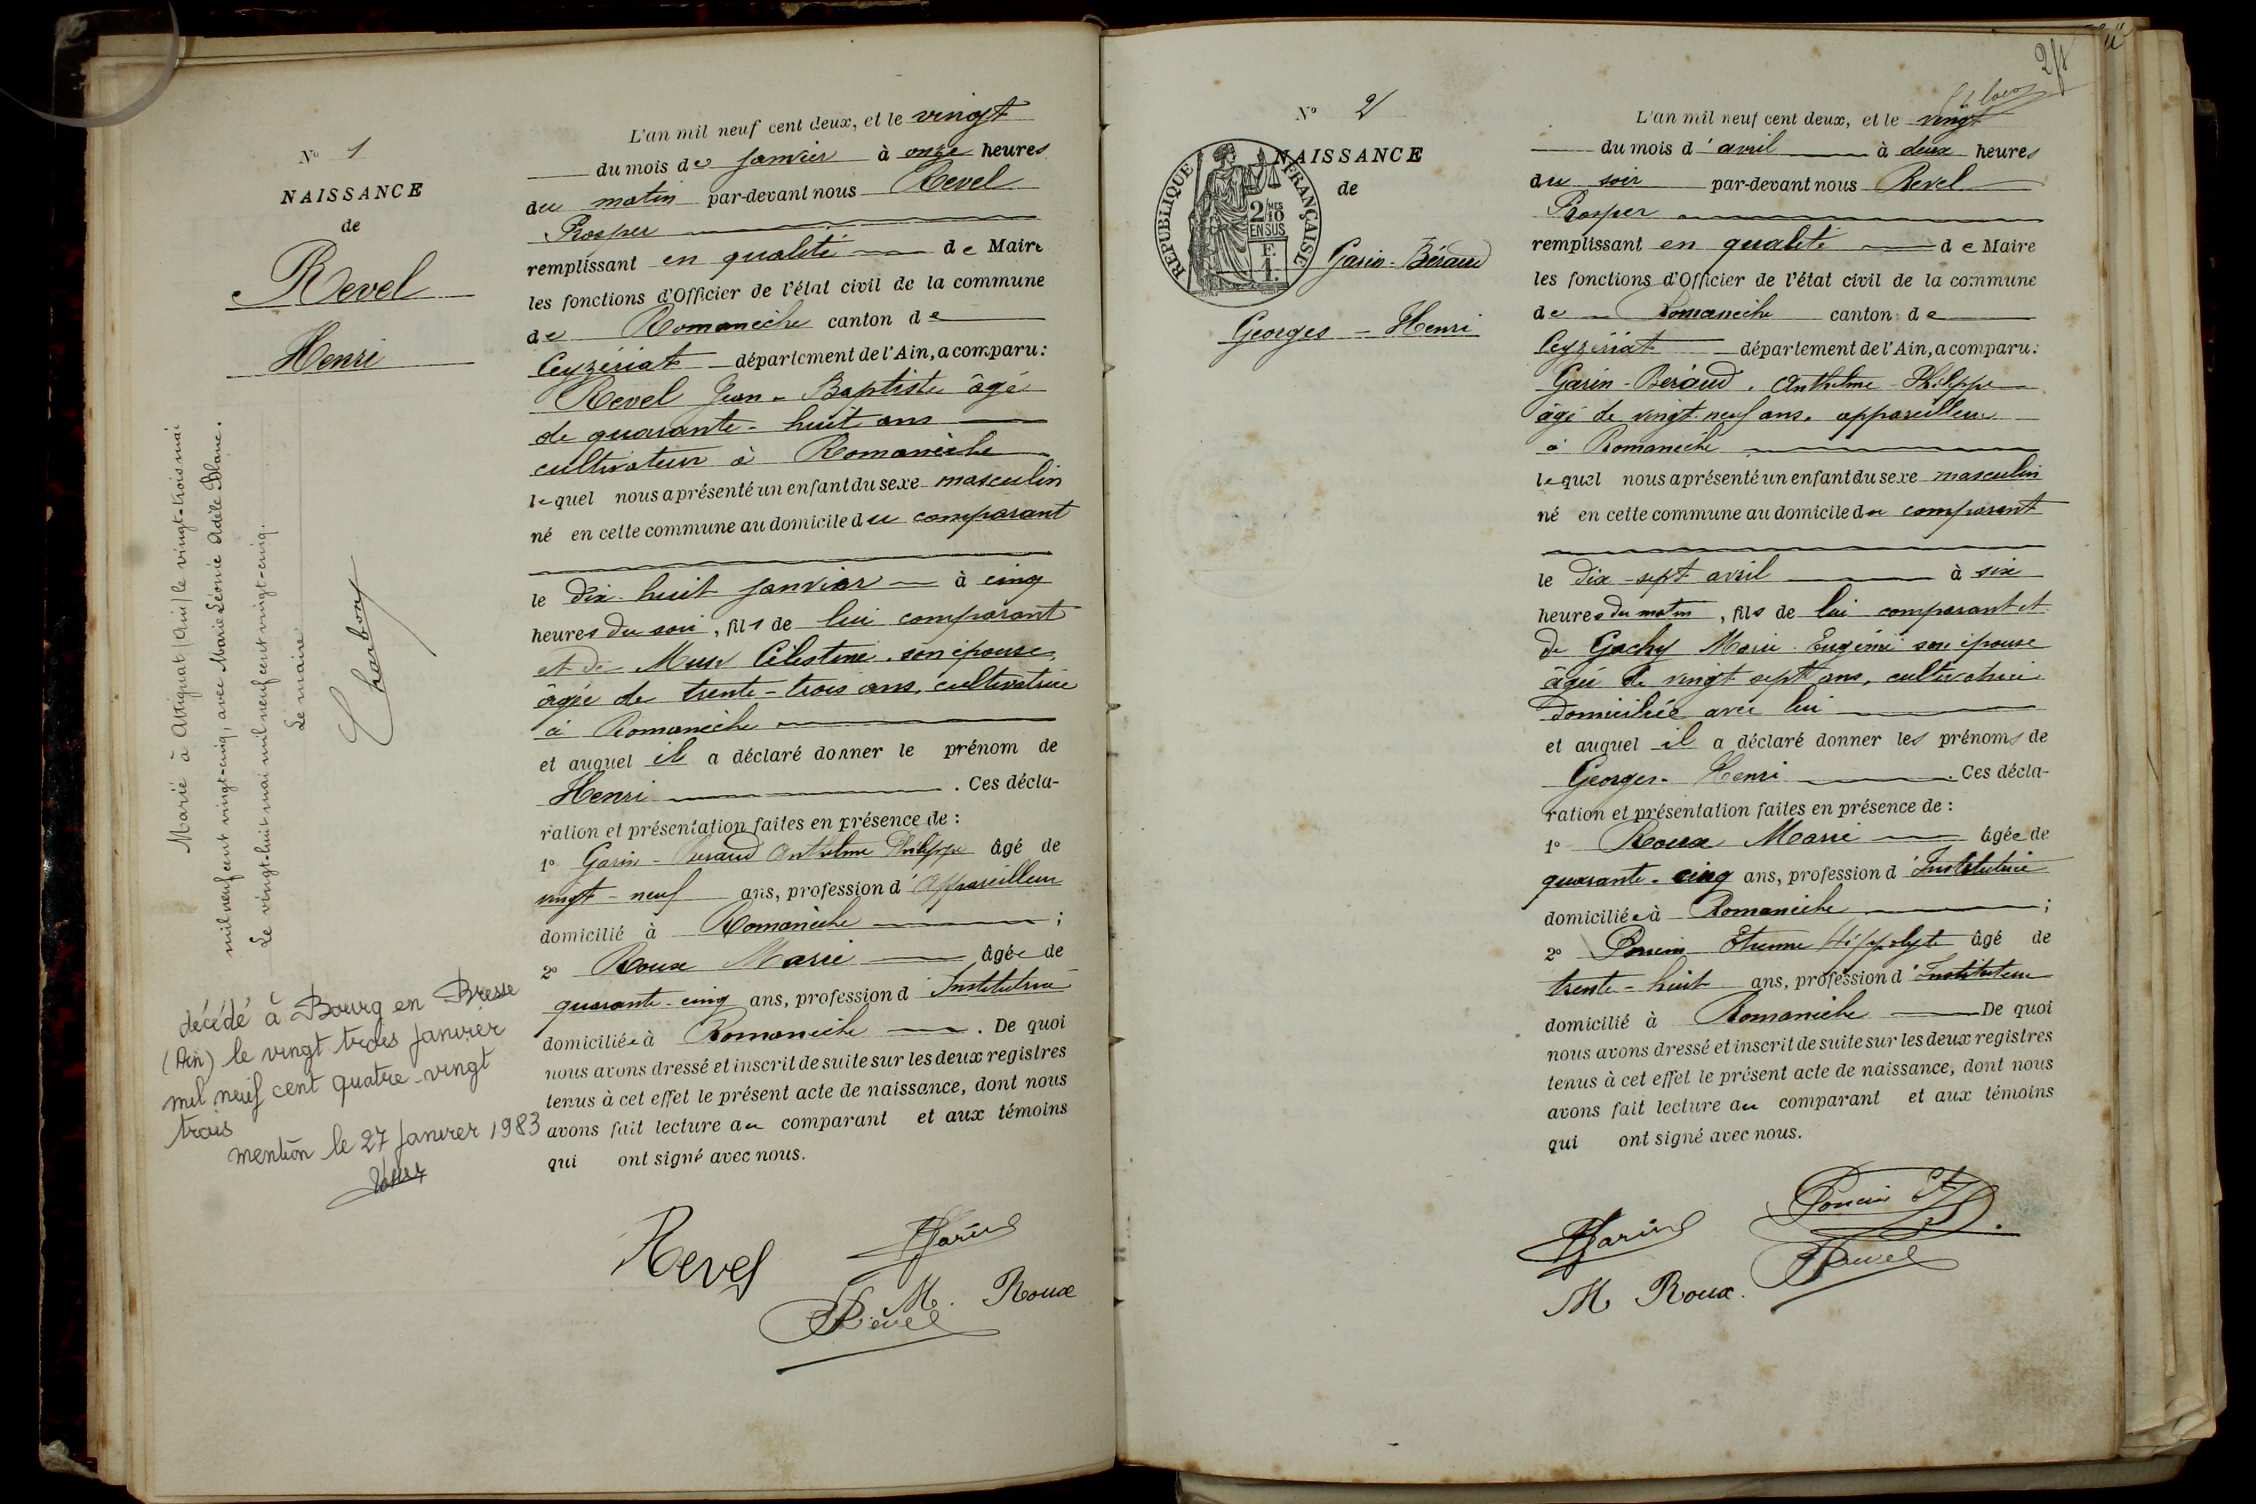 N° 1
NAISSANCE
de
Revel
Henri
Marié à Attignat (Ain) le vingt-trois mai
mil neuf cent vingt-cinq, avec Marie Léonie Adèle Blanc.
Le vingt-huit mai mil neuf cent vingt-cinq.
Le maire:
Charbon
décédé à Bourg en Bresse
(Ain) le vingt trois janvier
mil neuf cent quatre-vingt
trois
mention le 27 Janvier 1983
L'an mil neuf cent deux, et le vingt
du mois de janvier à onze heures
du matin par-devant nous Revel
Prosper
remplissant en qualité de Maire
les fonctions d'Officier de l'état civil de la commune
de Romanèche canton de
Ceyzériat département de l'Ain, a comparu:
Revel Jean-Baptiste âgé
de quarante-huit ans
cultivateur à Romanèche
lequel nous a présenté un enfant du sexe masculin
né en cette commune au domicile du comparant
le dix-huit janvier à cinq
heures du soir, fils de lui comparant
et de Célestine, son épouse,
âgée de trente-trois ans, cultivatrice
à Romanèche
et auquel il a déclaré donner le prénom de
Henri. Ces décla-
ration et présentation faites en présence de:
1° Garin-Beraud Anthelme Philippe âgé de
vingt-neuf ans, profession d'appareilleur
domicilié à Romanèche;
2° Roux Marie âgée de
quarante-cinq ans, profession d'Institutrice
domiciliée à Romanèche. De quoi
nous avons dressé et inscrit de suite sur les deux registres
tenus à cet effet le présent acte de naissance, dont nous
avons fait lecture au comparant et aux témoins
qui ont signé avec nous.
Revel
Garin
M. Roux
Revel
N° 2
NAISSANCE
de
REPUBLIQUE FRANÇAISE
2/10 MES
EN SUS
F.
1.
Garin-Béraud
Georges-Henri
L'an mil neuf cent deux, et le vingt
du mois d'avril à deux heures
du soir par-devant nous Revel
Prosper
remplissant en qualité de Maire
les fonctions d'Officier de l'état civil de la commune
de Romanèche canton de
Ceyzériat département de l'Ain, a comparu:
Garin-Béraud, Anthelme-Philippe
âgé de vingt-neuf ans, appareilleur
à Romanèche
lequel nous a présenté un enfant du sexe masculin
né en cette commune au domicile du comparant
le dix-sept avril à six
heures du matin, fils de lui comparant et
de Gachy Marie Eugénie son épouse
âgée de vingt sept ans, cultivatrice
domiciliée avec lui
et auquel il a déclaré donner les prénoms de
Georges-Henri. Ces décla-
ration et présentation faites en présence de:
1° Roux Marie âgée de
quarante-cinq ans, profession d'Institutrice
domiciliée à Romanèche;
2° Poncin Etienne Hippolyte âgé de
trente-huit ans, profession d'Instituteur
domicilié à Romanèche De quoi
nous avons dressé et inscrit de suite sur les deux registres
tenus à cet effet le présent acte de naissance, dont nous
avons fait lecture au comparant et aux témoins
qui ont signé avec nous.
Poncin Et
Garin
Revel
M Roux.